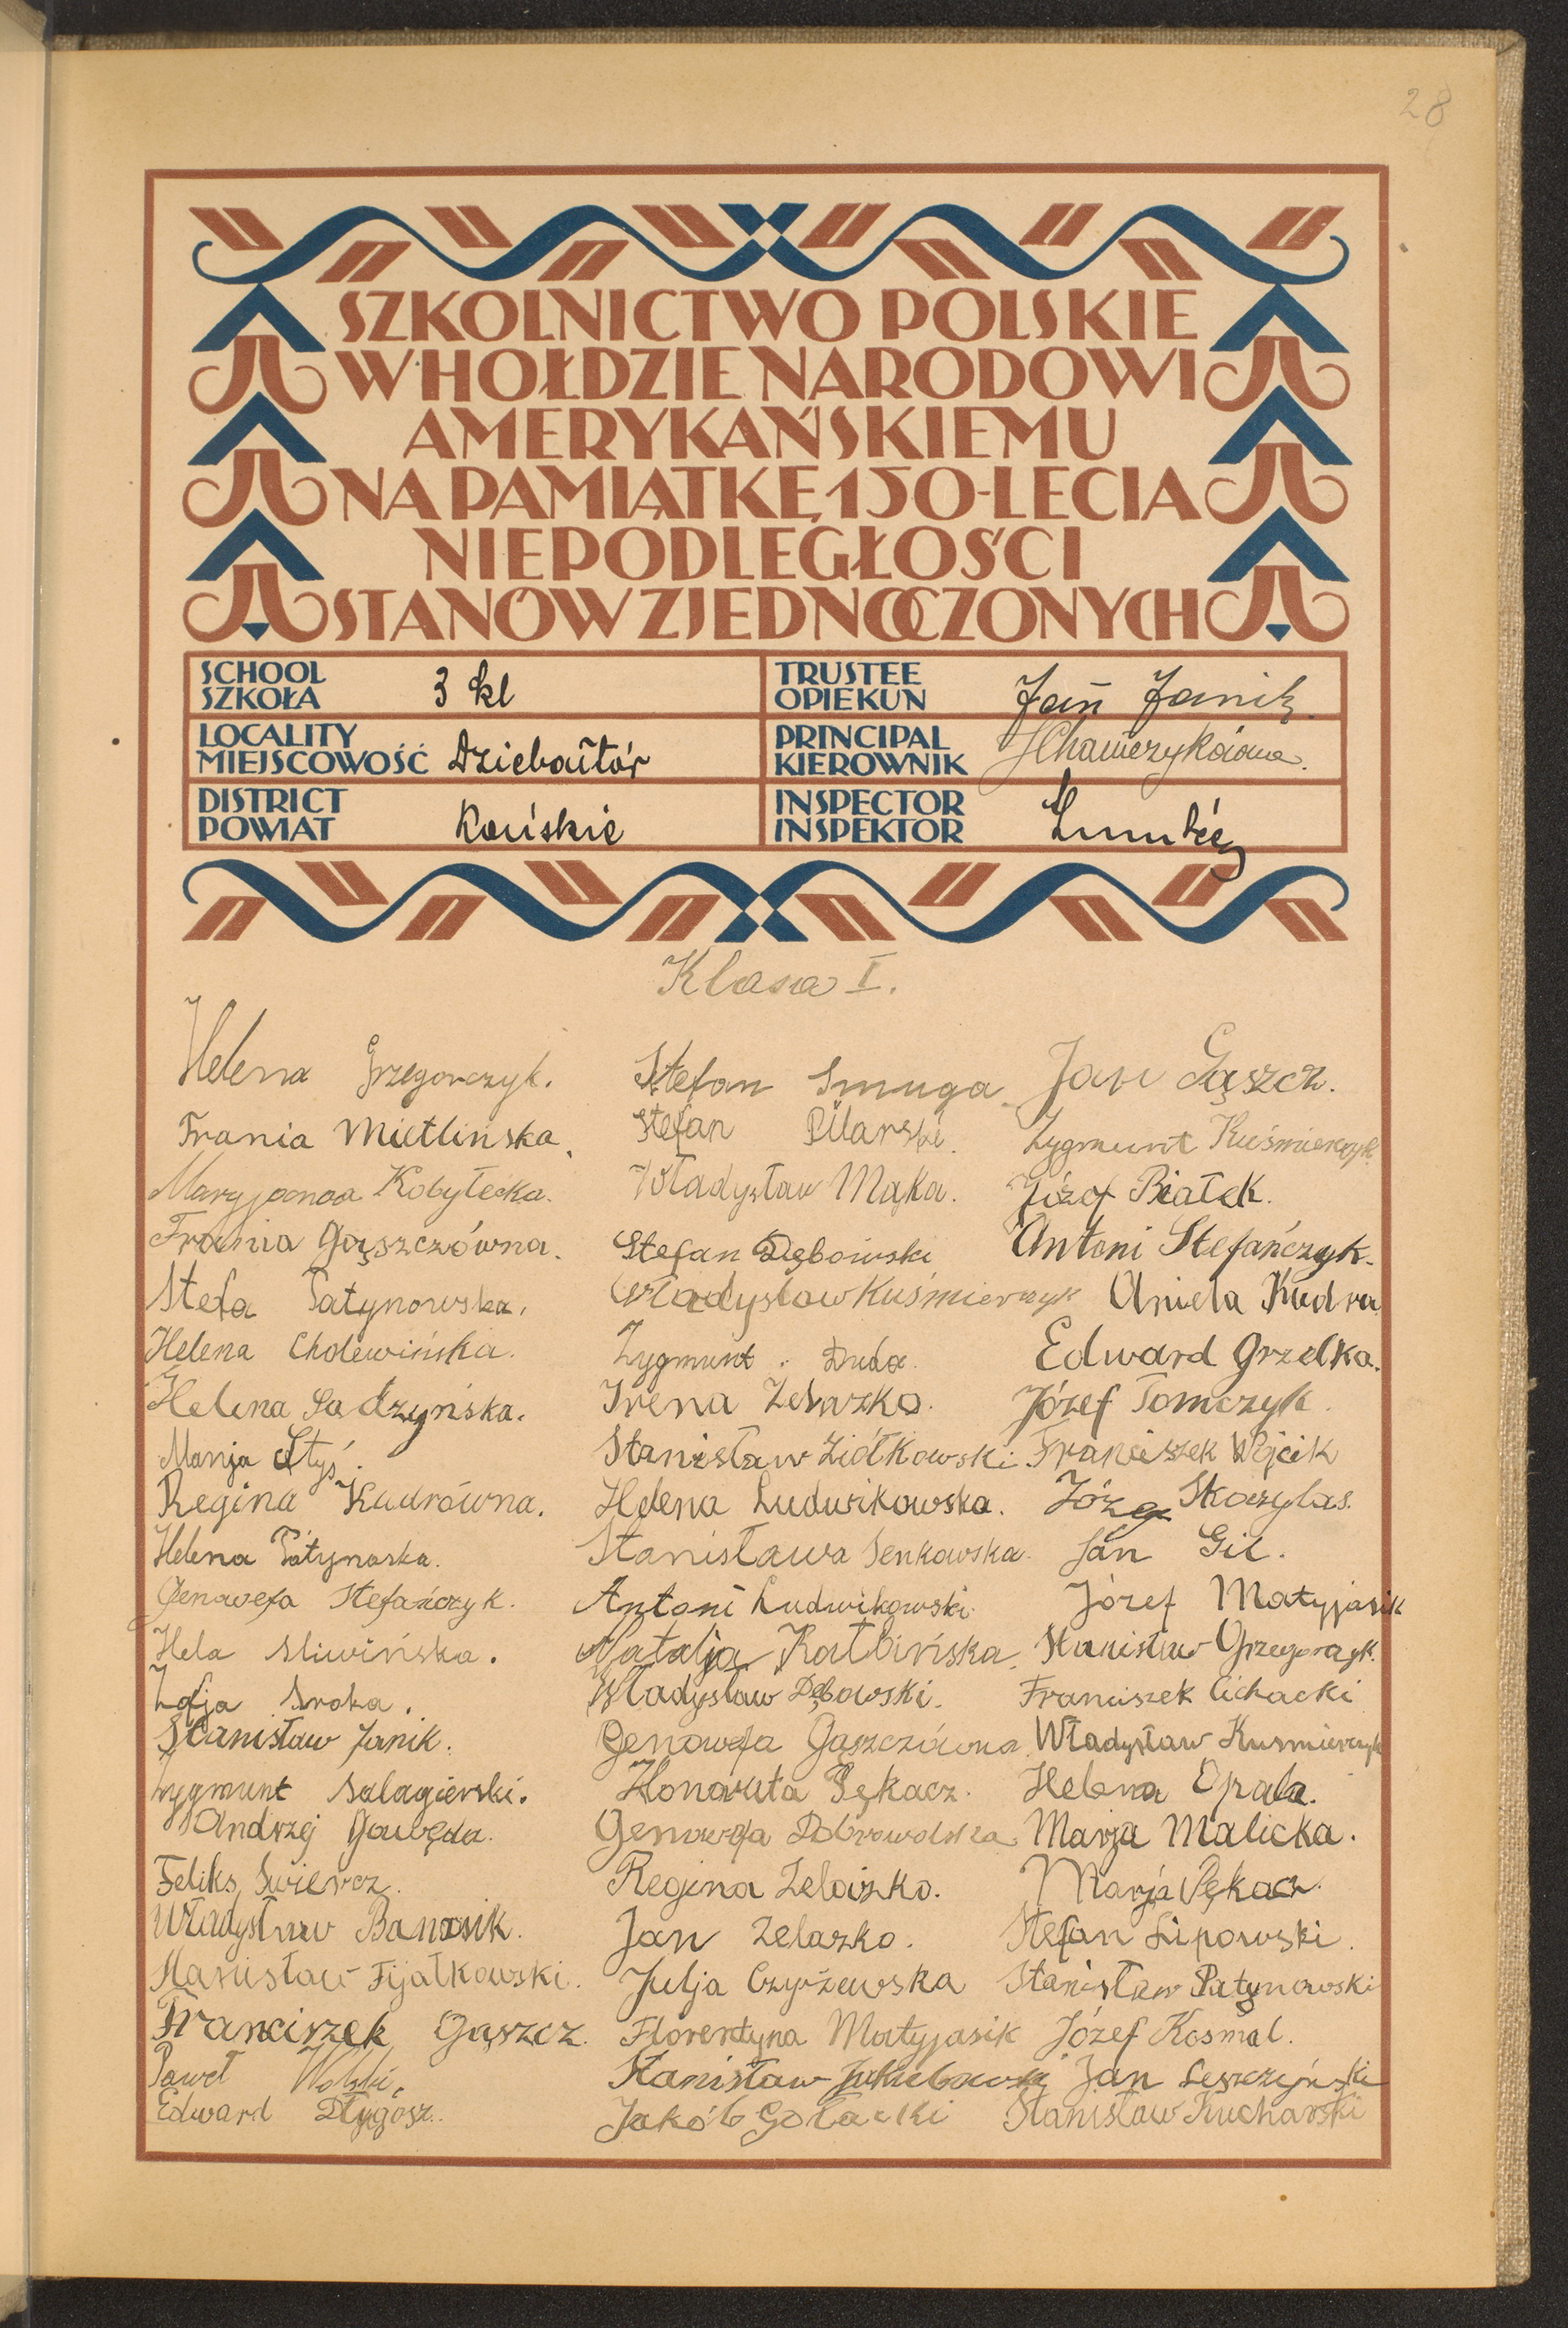 28
SZKOLNICTWO POLSKIE
W HOŁDZIE NARODOWI
AMERYKAŃSKIEMU
NA PAMIĄTKĘ 150-LECIA
NIEPODLEGŁOŚCI
STANÓW ZJEDNOCZONYCH
SCHOOL
SZKOŁA 3 kl
TRUSTEE
OPIEKUN Jan Janik
LOCALITY
MIEJSCOWOŚĆ Dziebałtów
PRINCIPAL
KIEROWNIK
DISTRICT
POWIAT Końskie
INSPECTOR
INSPEKTOR
Klasa I.
Helena Grzegorczyk.
Frania Mietlińska.
Maryjanna Kobyłecka.
Frania Gąszczówna.
Stefa Patynowska.
Helena Cholewińska.
Helena Sadzyńska.
Manja Styś.
Regina Kudrówna.
Helena Patynoska.
Genowefa Stefańczyk.
Hela Sliwińska.
Zofja Sroka.
Stanisław Janik.
Zygmunt Salagierski.
Andrzej Gawęda.
Feliks Swiercz.
Władysław Banasik.
Stanisław Fijałkowski.
Franciszek Gąszcz.
Paweł Wolski.
Edward Dłygosz.
Stefan Smuga
Stefan Pilarski.
Władysław Mąka.
Stefan Dębowski
Władysław Kuśmierczyk
Zygmunt Duda.
Irena Zelazko.
Stanisław Ziółkowski
Helena Ludwikowska.
Stanisława Senkowska.
Antoni Ludwikowski.
Natalja Kałbińska.
Władysław Dębowski.
Genowefa Gąszczówna
Honorata Pękacz.
Genowefa Dobrowolska
Regina Zelazko.
Jan Zelazko.
Julja Czyżewska
Florentyna Matyjasik
Stanisław Jakubowski
Jakób Gołacki
Jan Gąszcz.
Zygmunt Kuśmierczyk
Józef Białek.
Antoni Stefańczyk.
Aniela Kudra
Edward Grzelka.
Józef Tomczyk.
Franciszek Wójcik
Józef Skorzylas.
Jan Gil.
Józef Matyjasik
Stanisław Grzegorczyk.
Franciszek Cichacki
Władysław Kusmierczyk
Helena Opala.
Marja Malicka.
Marja Pękacz.
Stefan Lipowski.
Stanisław Patynowski
Józef Kosmal.
Jan Leszczyński
Stanisław Kucharski